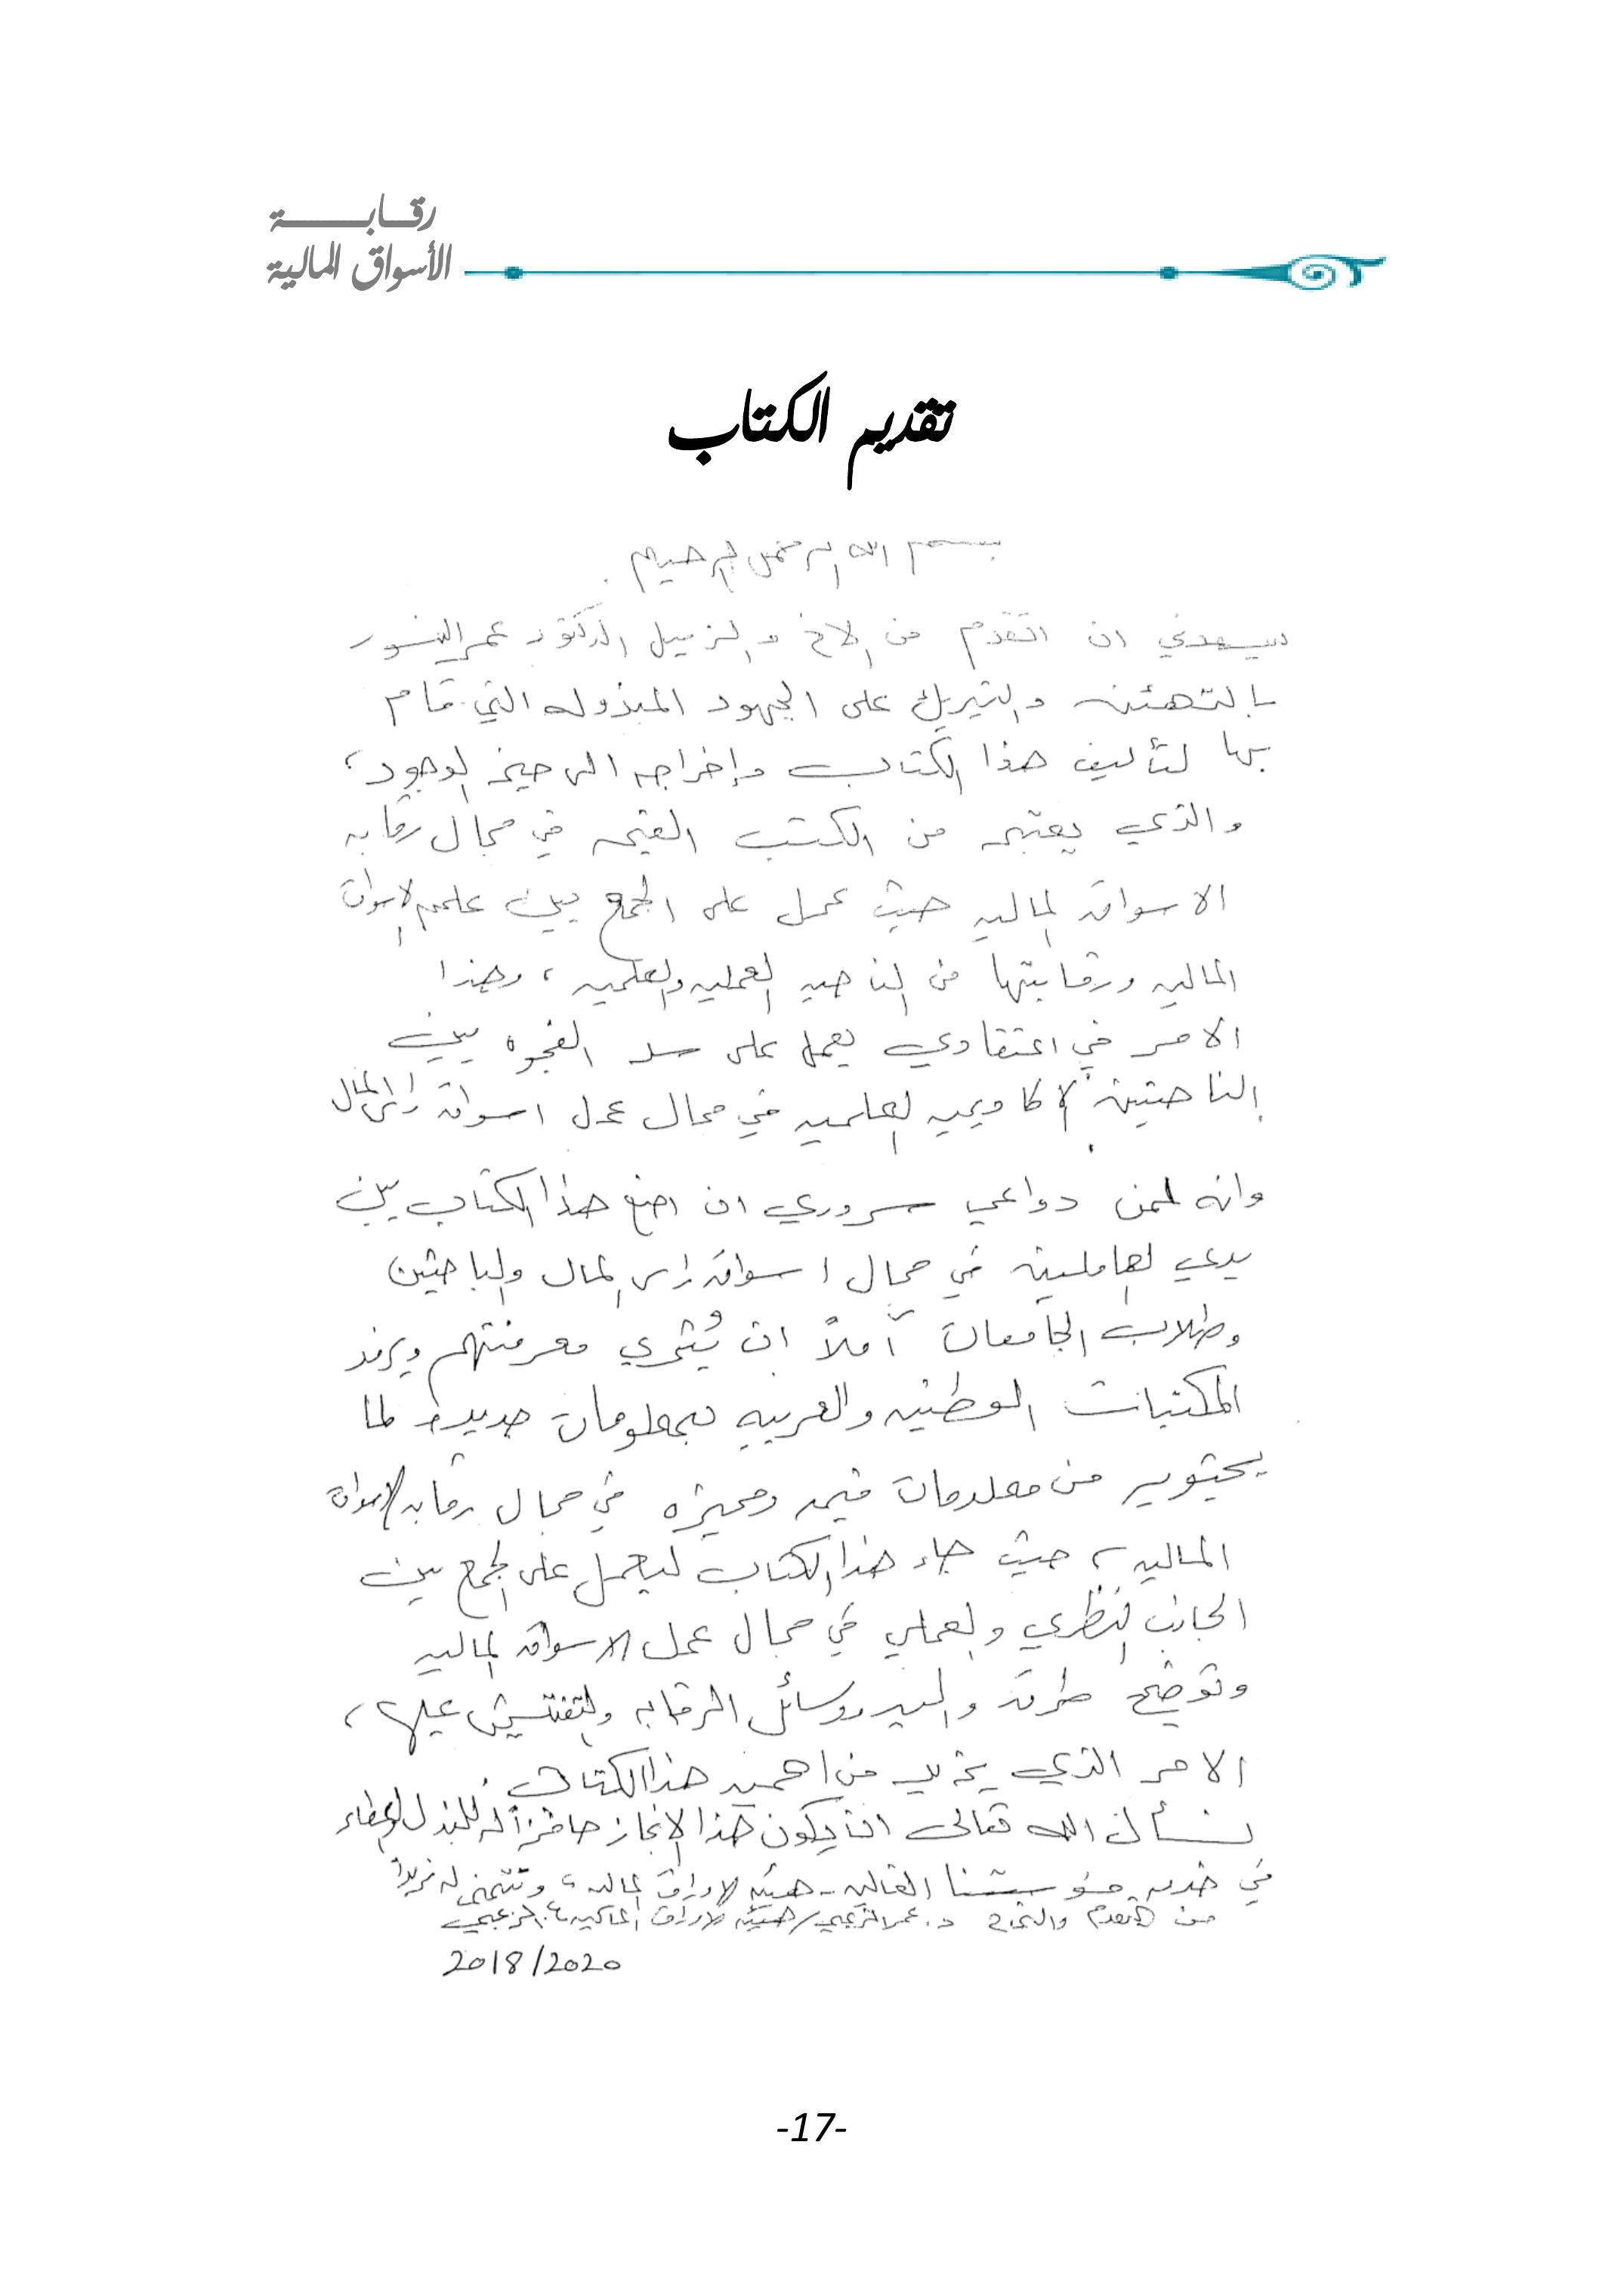 رقابة
الأسواق المالية
تقديم الكتاب
بسم الله الرحمن الرحيم .
يسعدني ان اتقدم من الاخ والزميل الدكتور عمر النسور
بالتهنئه والتبريك على الجهود المبذوله التي قام
بها لتأليف هذا الكتاب وإخراجه الى حيز الوجود،
والذي يعتبر من الكتب القيمه في مجال رقابه
الاسواق الماليه حيث عمل على الجمع بين علم الاسواق
الماليه ورقابتها من الناحيه العمليه والعلميه، وهذا
الامر في اعتقادي يعمل على سد الفجوه بين
الناحيتين الاكاديميه العلميه في مجال عمل اسواق راس المال
وانه لمن دواعي سروري ان اضع هذا الكتاب بين
يدي العاملين في مجال اسواق راس المال والباحثين
وطلاب الجامعات آملاً ان يُثري معرفتهم ويرفد
المكتبات الوطنيه والعربيه بمعلومات جديده لما
يحتويه من معلومات قيمه ومميزه في مجال رقابه الاسواق
الماليه، حيث جاء هذا الكتاب ليعمل على الجمع بين
الجانب النظري والعملي في مجال عمل الاسواق الماليه
وتوضيح طرق واليه ووسائل الرقابه والتفتيش عليها،
الامر الذي يزيد من اهميه هذا الكتاب.
نسأل الله تعالى ان يكون هذا الإنجاز حافزاً له للبذل والعطاء
في خدمه مؤسستنا الغاليه - هيئه الاوراق الماليه، ونتمنى له مزيداً
من التقدم والنجاح د. عمر الزعبي/هيئه الاوراق الماليه الزعبي
2018/2020
-17-